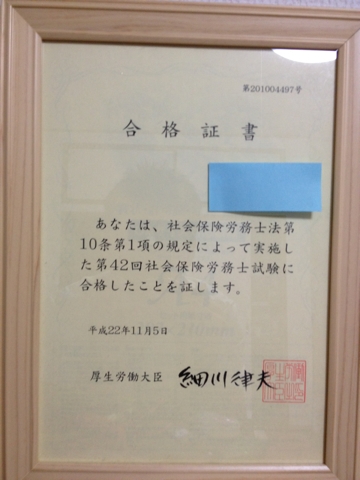 第201004497号
合格証書
あなたは、社会保険労務士法第
10条第1項の規定によって実施し
た第42回社会保険労務士試験に
合格したことを証します。
平成22年11月5日
厚生労働大臣 細川律夫